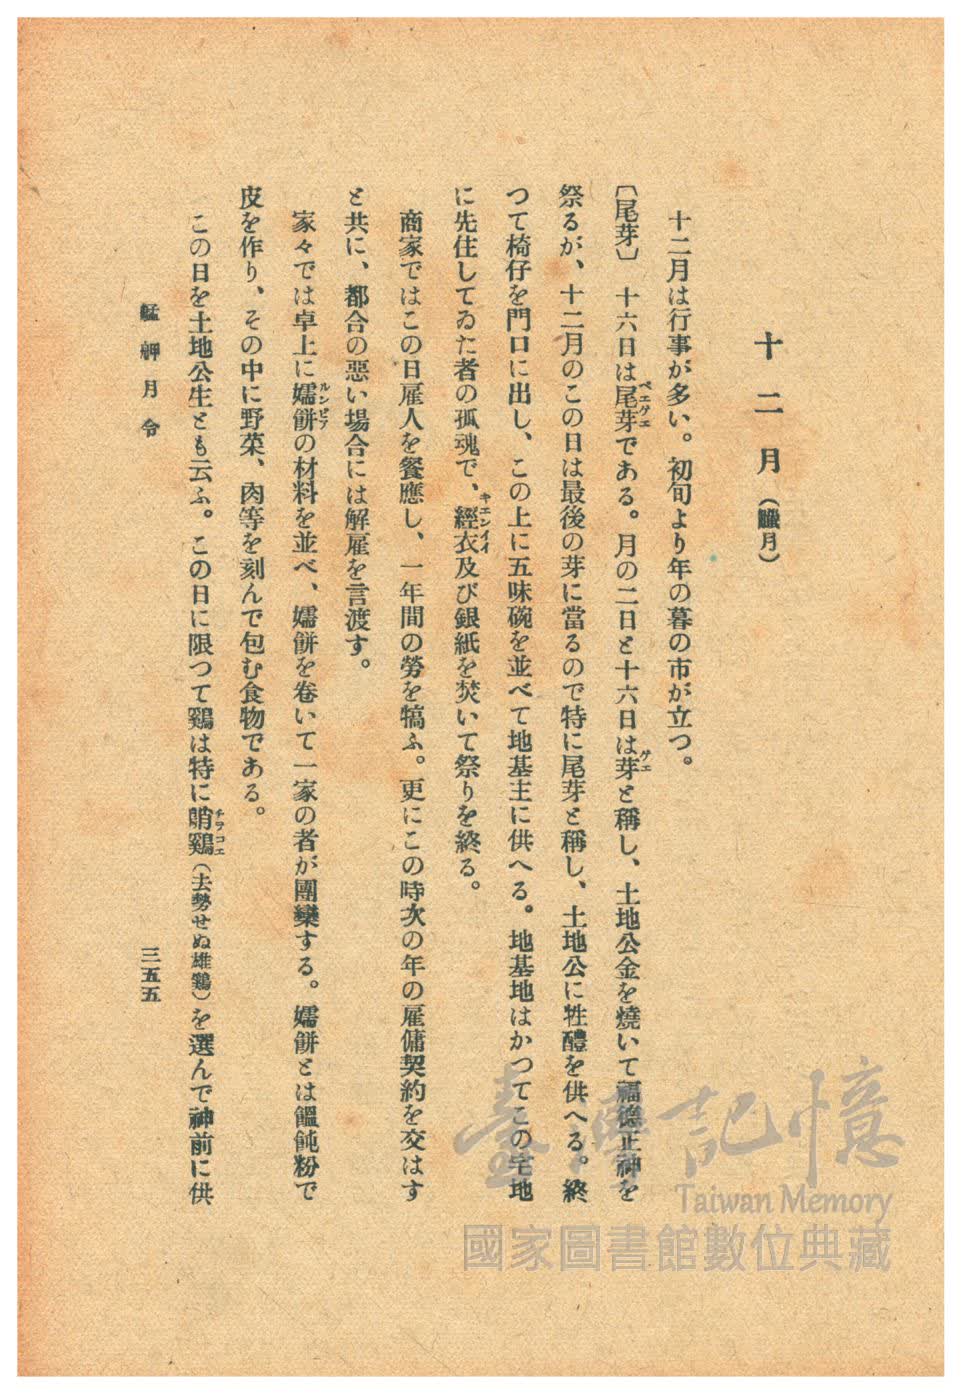 十二月（臘月）
十二月は行事が多い。初旬より年の暮の市が立つ。
〔尾芽〕　十六日は尾芽である。月の二日と十六日は芽と稱し、土地公金を燒いて福德正神を
ベエゲエ
ゲエ
祭るが、十二月のこの日は最後の芽に當るので特に尾芽と稱し、土地公に牲醴を供へる。終
つて椅仔を門口に出し、この上に五味碗を並べて地基主に供へる。地基地はかつてこの宅地
に先住してゐた者の孤魂で、經衣及び銀紙を焚いて祭りを終る。
キエンイイ
商家ではこの日雇人を餐應し、一年間の勞を犒ふ。更にこの時次の年の雇傭契約を交はす
と共に、都合の惡い場合には解雇を言渡す。
家々では卓上に嬬餅の材料を並べ、嬬餅を卷いて一家の者が團欒する。嬬餅とは饂飩粉で
ルンピア
皮を作り、その中に野菜、肉等を刻んで包む食物である。
この日を土地公生とも云ふ。この日に限つて鷄は特に鷄（去勢せぬ雄鷄）を選んで神前に供
艋舺月令
三五五
臺灣記憶
Taiwan Memory
國家圖書館數位典藏